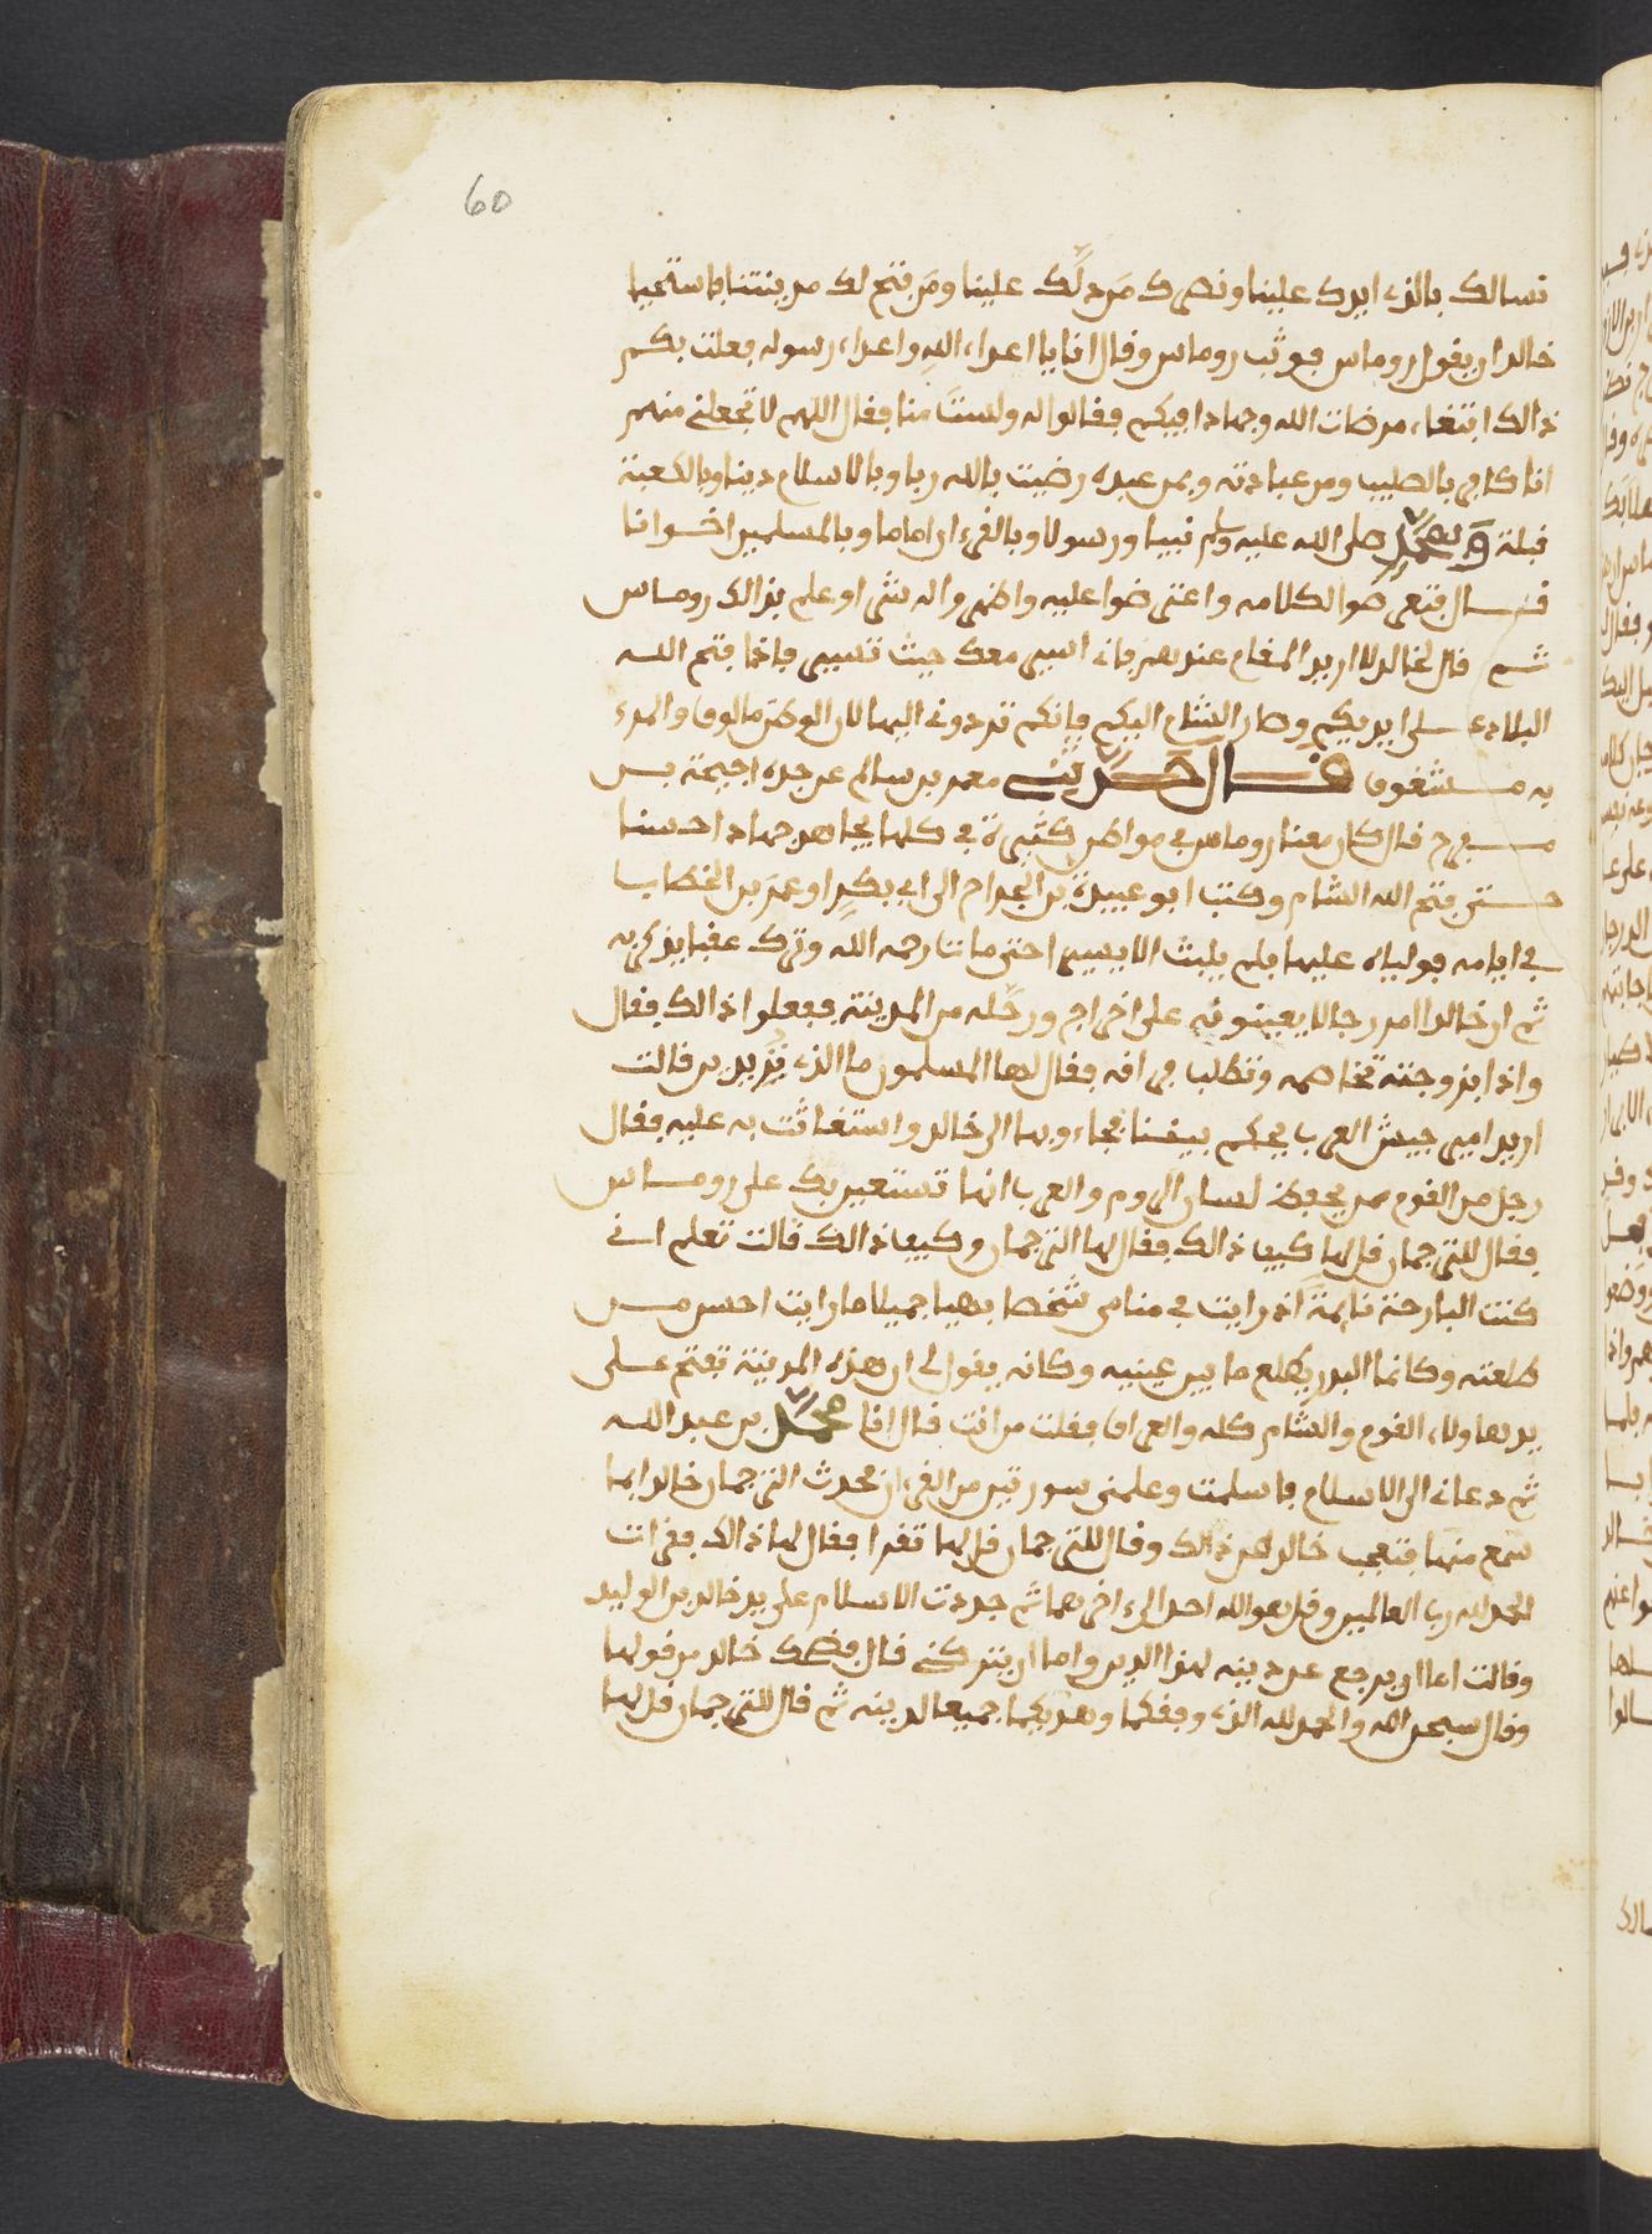 60
نسالك بالذي ايدك علينا ونصرك مَن دلَّك علينا ومَن فتح لك مدينتنا فاستحيا
خالد ان يقول روماس فوثب روماس وقال انا يا اعداء اللهِ واعداء رسوله فعلت بكم
ذالك ابتغاء مرضات الله وجهادا فيكم فقالوا له ولستَ منا فقال اللهم لا تجعلني منهم
انا كافر بالصليب ومن عبادته وبمن عبده رضيت بالله ربا وبالاسلام دينا وبالكعبة
قبلة وبمحمّد صلى الله عليه وسلم نبيا ورسولا وبالقرءان اماما وبالمسلمين اخوانا
قال فتعرضوا لكلامه واعترضوا عليه واظهروا له شرا وعلم بذالك روماس
ثم قال لخالد لا اريد المقام عندهم فاني اسير معك حيث تسير فاذا فتح الله
البلاد على ايديكم وصار الشام اليكم فانكم تردوني اليها لان الوطن مالوف والمرء
به مشغوف قال حدّيث معمر بن سالم عن جده اجيمة بن
مفرج قال كان معنا روماس في مواطن كثيرة في كلها يجاهد جهادا حسنا
حتى فتح الله الشام وكتب ابو عبيدة بن الجراح الى ابي بكرٍ او عمَر بن الخطاب
في ايامه فولياه عليها فلم يلبث الا يسيرا حتى مات رحمه الله وترك عقبا يذكر به
ثم ان خالدا امر رجالا يعينونه على اخراج ورحله من المدينة ففعلوا ذالك فقال
واذا بزوجته تخاصمه وتطلب فراقه فقال لها المسلمون ما الذي تريدين قالت
اريد امير جيش العرب يحكم بيننا فجاءوا بها الى خالد واستغاثت به عليه فقال
رجل من القوم ممن يحفظ لسان الروم والعرب انها تستعين بك على روماس
فقال للترجمان قل لها كيف ذالك فقال لها الترجمان وكيف ذالك قالت تعلم اني
كنت البارحة نايمةً اذ رايت في منامي شخصا بهيا جميلا ما رايت احسن من
طلعته وكانما البدر يطلع ما بين عينيه وكانه يقول لي ان هذه المدينة تفتح على
يد هاولاء القوم والشام كله والعراق فقلت من انت قال انا محمّد بن عبد الله
ثم دعاني الى الاسلام فاسلمت وعلمني سورتين من القرءان فحدث الترجمان خالدا بما
سمع منها فتعجب خالد من ذالك وقال للترجمان قل لها تقرا فقال لها ذالك فقرات
الحمد لله رب العالمين وقل هو الله احد الى ءاخرهما ثم جددت الاسلام على يد خالد بن الوليد
وقالت اما ان يرجع عن دينه لهذا الدين واما ان يتركني قال فضحك خالد من قولها
وقال سبحن الله والحمد لله الذي وفقكما وهديكما جميعا لدينه ثم قال للترجمان قل لها